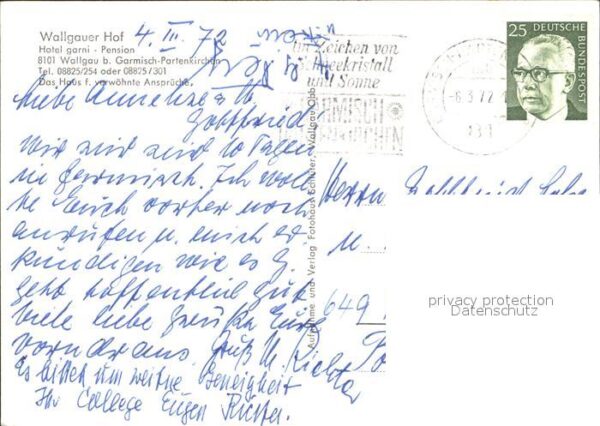 Wallgauer Hof
Hotel garni - Pension
8101 Wallgau b. Garmisch-Partenkirchen
Tel. 08825/254 oder 08825/301
Das Haus f. verwöhnte Ansprüche
4. III. 72
Im Zeichen von
Schneekristall
und Sonne
GARMISCH
PARTENKIRCHEN
-6.3.72
25 DEUTSCHE
BUNDESPOST
Liebe Anneliese u.
Gottfried
Wir sind seit 10 Tagen
in Garmisch. Ich wollte
Euch vorher noch
anrufen u. mich er
kundigen wie es G.
geht hoffentlich gut
viele liebe Grüße Eure
Gruß M. Richter
Es bittet um weitere Geneigtheit
Ihr College Eugen Richter.
Aufnahme und Verlag Fotohaus Schluter, Wallgau Obb.
Herrn Gottfried
u.
649
privacy protection
Datenschutz